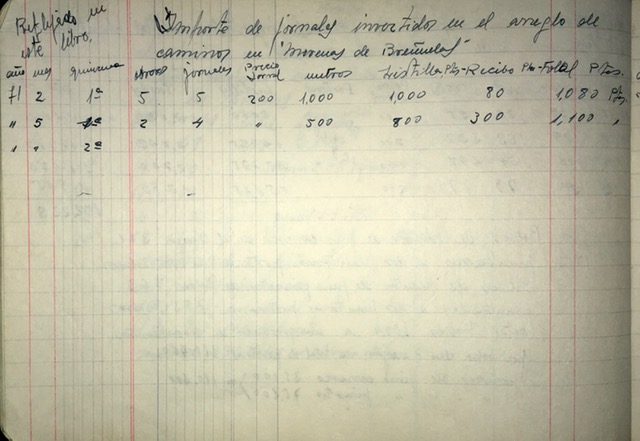 Reflejado en
este libro.
Importe de jornales invertidos en el arreglo de
caminos en "Morenas de Breñuelas"
año mes quincena obreros jornales Precio Jornal metros Listilla Pts - Recibo Pts - Total Pts.
71 2 1ª 5 5 200 1,000 1,000 80 1,080 Pts.
" 5 1ª 2 4 " 500 800 300 1,100 "
" " 2ª
- -